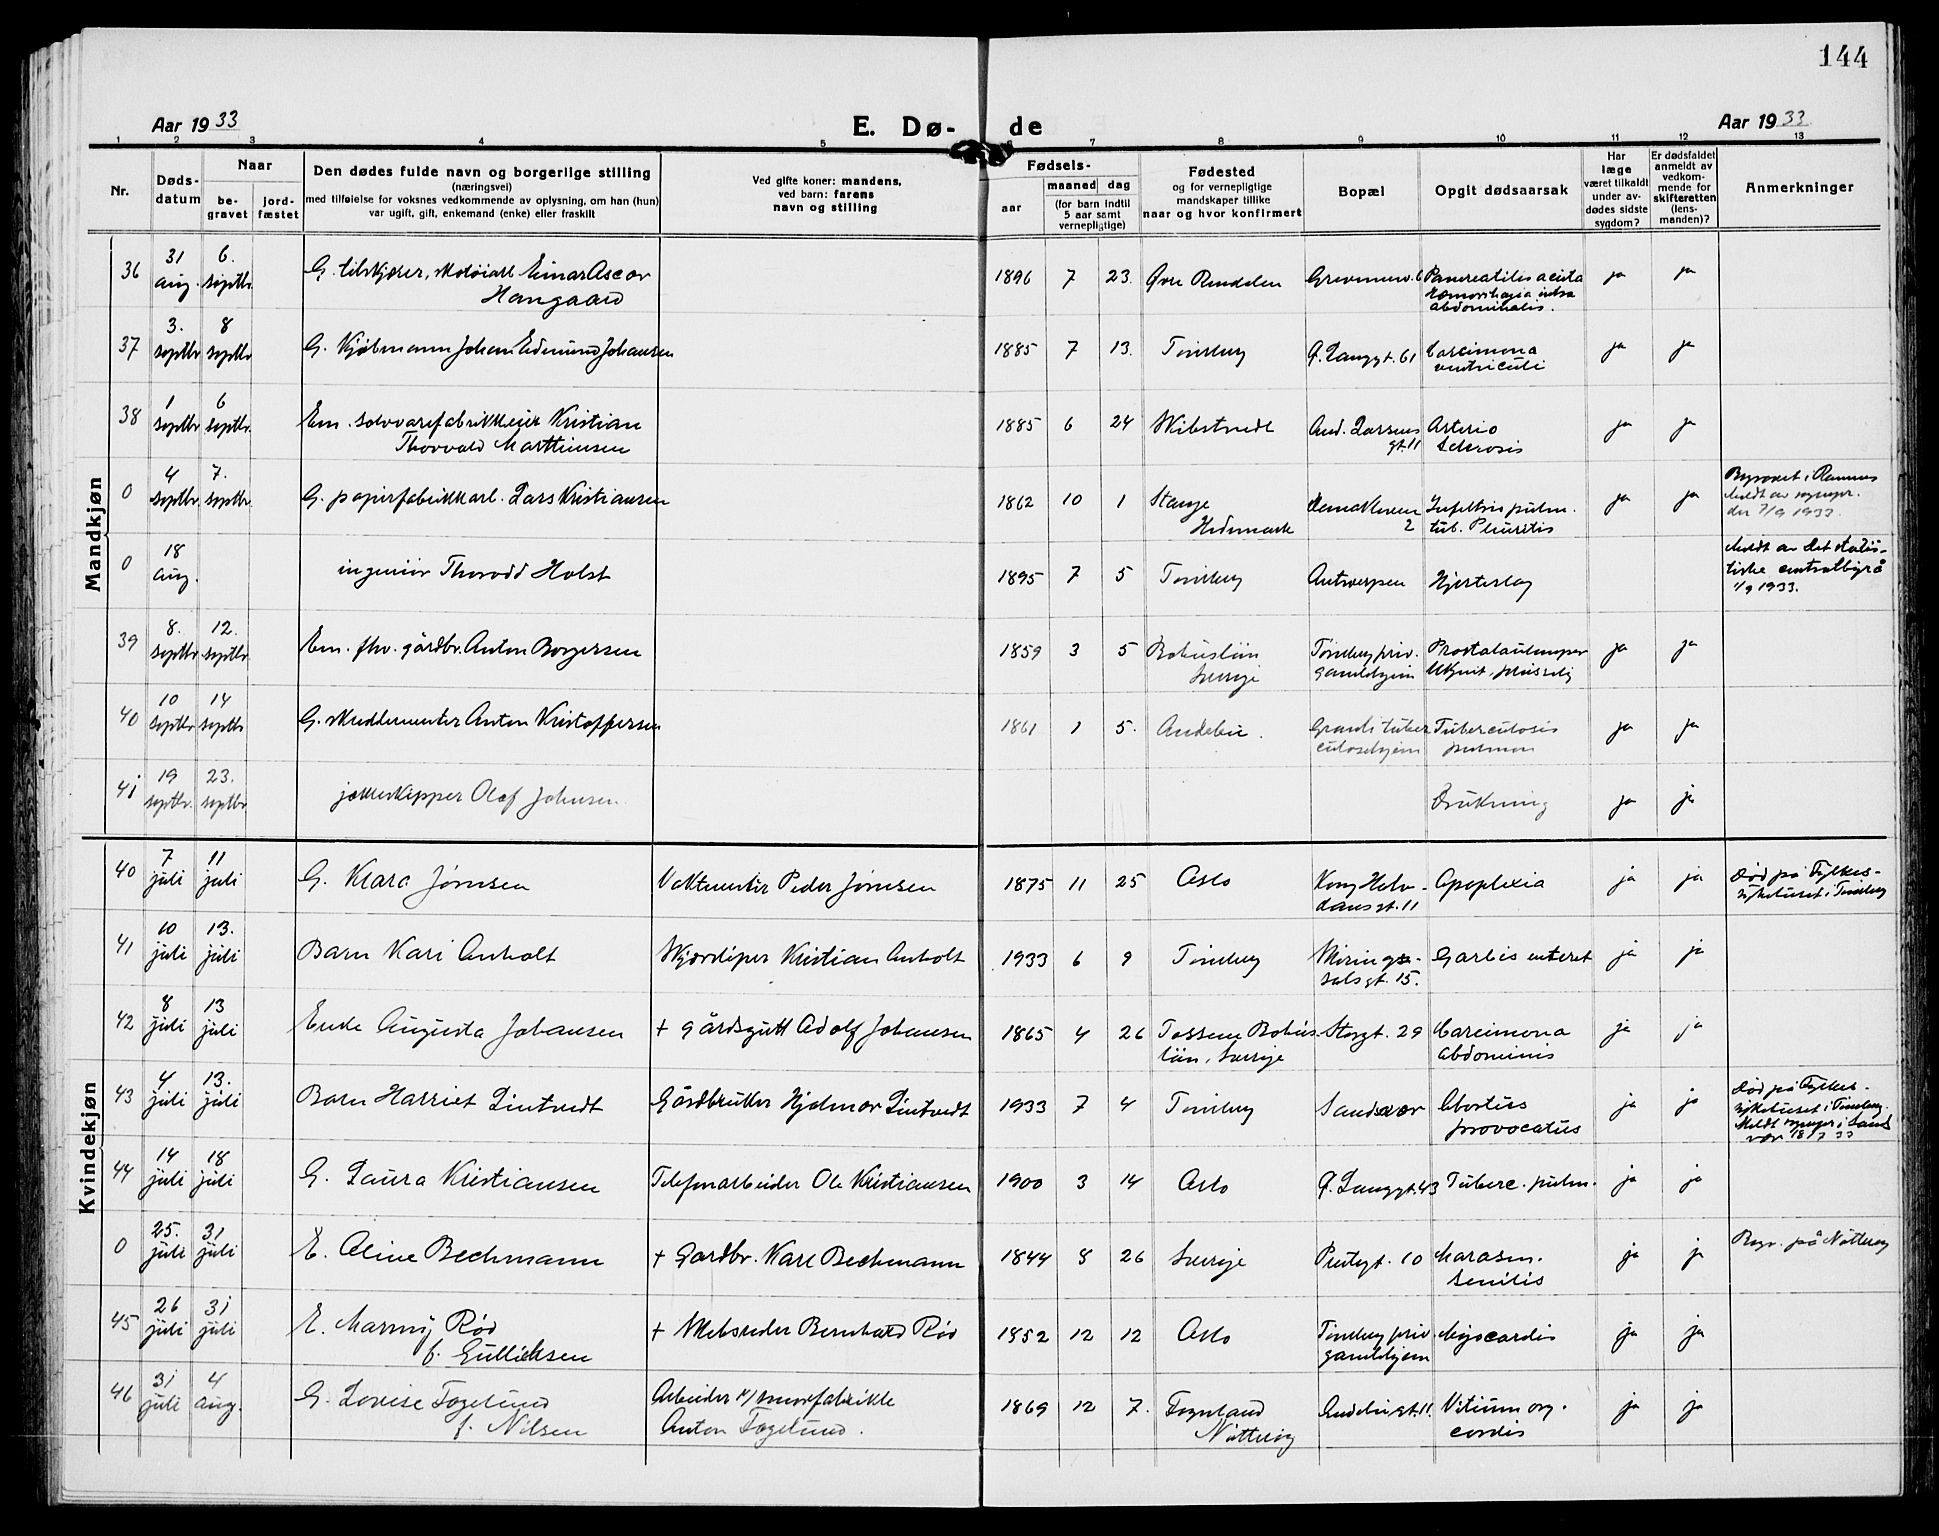 144
Aar 1933
E. Dø-
de
Aar 1933
1 2 3 4 5 6 7 8 9 10 11 12 13
Nr.
Døds-
datum
Naar
be-
gravet
jord-
fæstet
Den dødes fulde navn og borgerlige stilling
(næringsvei)
med tilføielse for voksnes vedkommende av oplysning, om han (hun)
var ugift, gift, enkemand (enke) eller fraskilt
Ved gifte koner: mandens,
ved barn: farens
navn og stilling
Fødsels-
aar
maaned dag
(for barn indtil
5 aar samt
vernepligtige)
Fødested
og for vernepligtige
mandskaper tillike
naar og hvor konfirmert
Bopæl
Opgit dødsaarsak
Har
læge
været tilkaldt
under av-
dødes sidste
sygdom?
Er dødsfaldet
anmeldt av
vedkom-
mende for
skifteretten
(lens-
manden)?
Anmerkninger
Mandkjøn
36 31 aug. 6. septbr. G. Einar Ascor
Haugaard
1896 7 23. Øvre Rendalen Pancreatitis acuta
abdominalis.
ja ja
37 3. septbr. 8 septbr. G. Kjøbmann Johan Edmund Johansen
1885 7 13. Tønsberg Ø. Langgt. 61 Carcinoma
ventriculi
ja ja
38 1 septbr. 6 septbr. Em. sølvvarefabrikkeier Kristian
Thorvald Marthinsen
1885 6 24 And. Larsens
gt. 11
Arterio
Sclerosis
ja ja
0 4 septbr. 7. septbr. G. papirfabrikkarb. Lars Kristiansen
1862 10 1 Stange
Hedemark
2
pulm.
tub. Pleuritis
ja ja
Begravet i Ramnes
Meldt av sogнepr.
den 7/9 1933.
0 18 aug. ingeniør Thorodd Holst
1895 7 5 Tønsberg Antwerpen Hjerteslag
Meldt av det statis-
tiske centralbyrå
1933.
39 8. septbr. 12. septbr. Em. fhv. gårdbr. Anton Borgersen
1859 3 5 Bohuslän
Sverige
Tønsberg priv.
gamlehjem
ja ja
40 10 septbr. 14 septbr. G. Anton Kristoffersen
1861 1 5. Andebu. tuber
culosehjem
Tuberculosis
pulmon
ja ja
41 19 septbr. 23. septbr. jakteskipper Olaf Johnsen
Drukning ja ja
Kvindekjøn
40 7 juli 11 juli G. Klara Jørnsen Vaktmester Peder Jørnsen
1875 11 25 Oslo Kong Halv-
dansgt. 11
Apoplexia
ja ja
Død på Fylkes-
sykehuset i Tønsberg
41 10 juli 13. juli Barn Kari Anholt Kristian Anholt
1933 6 9 Tønsberg
salsgt. 15.
ja ja
42 8 juli 13 juli Enke Augusta Johansen + Gårdsgutt Adolf Johansen
1865 4 26 Tossene Bohus-
län, Sverige
Storgt. 29 Carcinoma
abdominis
ja ja
43 4 juli 13. juli Barn Harriet Lintvedt Gårdbruker Hjalmar Lintvedt
1933 7 4 Tønsberg Sandsvær Abortus
provocatus
ja ja
Død på Fylkes-
sykehuset i Tønsberg.
Meldt sognepr. i Sands
vær 18 7 33
44 14 juli 18 juli G. Laura Kristiansen Telefonarbeider Ole Kristiansen
1900 3 14 Oslo Ø. Langgt. 43 Tuberc. pulm.
ja ja
0 25. juli 31 juli E. Aline Bechmann + Gardbr. Karl Bechmann
1844 8 26 Sverige Prestegt. 10 Marasm.
senilis
ja ja
Begr. på Nøtterøy
45 26 juli 31 juli E. Marny Rød
f. Gulliksen
+ Skibsreder Bernhard Rød
1852 12 12 Oslo Tønsberg priv
gamlehjem
Myocardis
ja ja
46 31 juli 4 aug. G. Lovise Fogelund
f. Nilsen
Arbeider v/ smørfabrikk
Anton Fogelund.
1869 12 7.
Nøtterøy
Andebu gt. 11. Vitium org.
cordis
ja ja